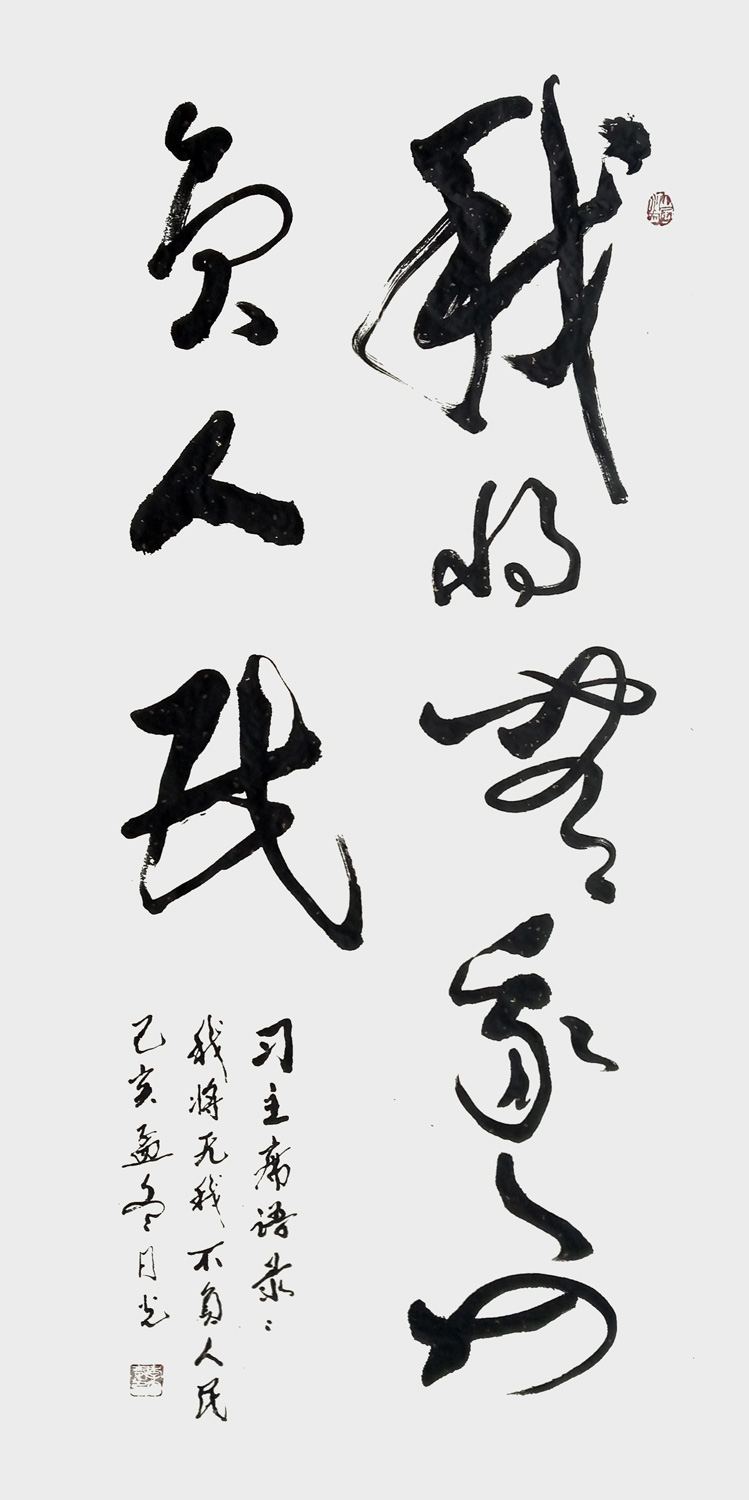 我将無我不
负人民
习主席语录：
我将无我不负人民
己亥孟冬月光